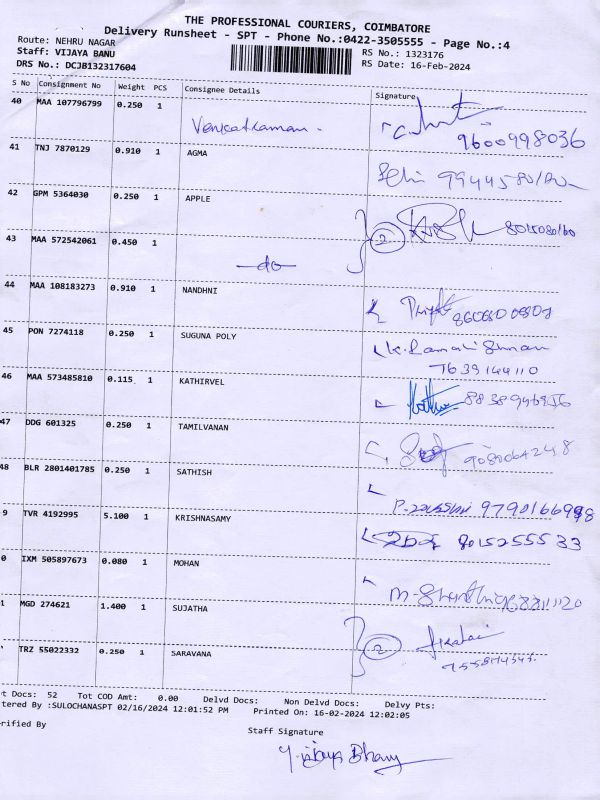 THE PROFESSIONAL COURIERS, COIMBATORE
Delivery Runsheet - SPT - Phone No.:0422-3505555 - Page No.:4
Route: NEHRU NAGAR
RS No.: 1323176
Staff: VIJAYA BANU
RS Date: 16-Feb-2024
DRS No.: DCJB132317604
S No Consignment No Weight PCS Consignee Details Signature
40 MAA 107796799 0.250 1
Venkatraman.
9600998036
41 TNJ 7870129 0.910 1 AGMA
42 GPM 5364030 0.250 1 APPLE
2
43 MAA 572542061 0.450 1
-do-
44 MAA 108183273 0.910 1 NANDHNI
45 PON 7274118 0.250 1 SUGUNA POLY
7639144110
46 MAA 573485810 0.115 1 KATHIRVEL
47 DDG 601325 0.250 1 TAMILVANAN
9080064248
48 BLR 2801401785 0.250 1 SATHISH
9790166998
9 TVR 4192995 5.100 1 KRISHNASAMY
8015255533
0 IXM 505897673 0.080 1 MOHAN
1 MGD 274621 1.400 1 SUJATHA
2
TRZ 55022332 0.250 1 SARAVANA
t Docs: 52 Tot COD Amt: 0.00 Delvd Docs: Non Delvd Docs: Delvy Pts:
tered By :SULOCHANASPT 02/16/2024 12:01:52 PM Printed On: 16-02-2024 12:02:05
erified By
Staff Signature